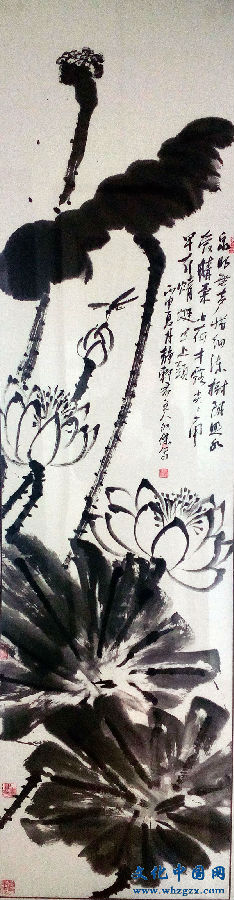 泉眼無声惜細流樹陰照水
愛晴柔小荷才露尖尖角
早有蜻蜓立上頭
丙申夏月
文化中国网
www.whzgzx.com